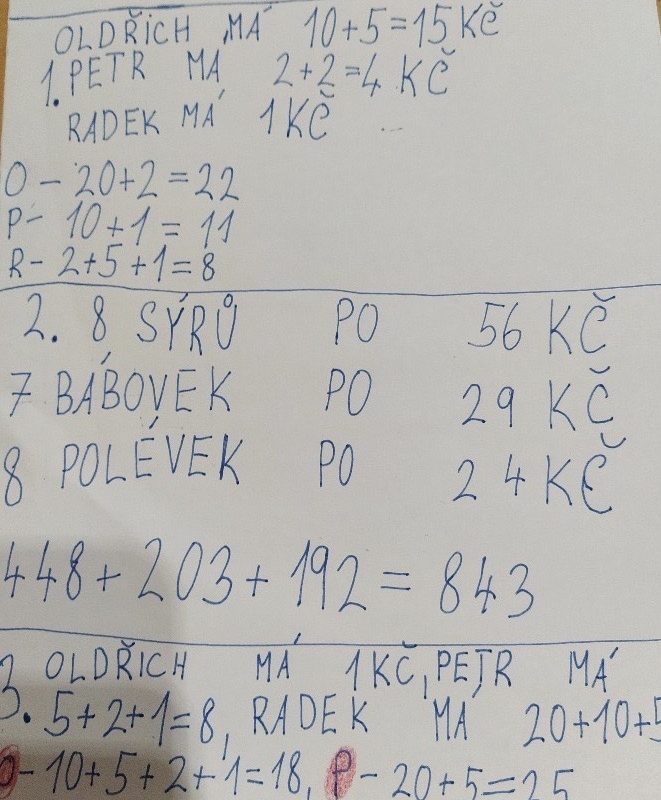 OLDŘICH MÁ 10+5=15 KČ
1. PETR MÁ 2+2=4 KČ
RADEK MÁ 1 KČ
O - 20+2=22
P - 10+1=11
R - 2+5+1=8
2. 8 SÝRŮ PO 56 KČ
7 BÁBOVEK PO 29 KČ
8 POLÉVEK PO 24 KČ
448+203+192=843
3. OLDŘICH MÁ 1 KČ, PETR MÁ
5+2+1=8, RADEK MÁ 20+10+5
O - 10+5+2+1=18, P - 20+5=25